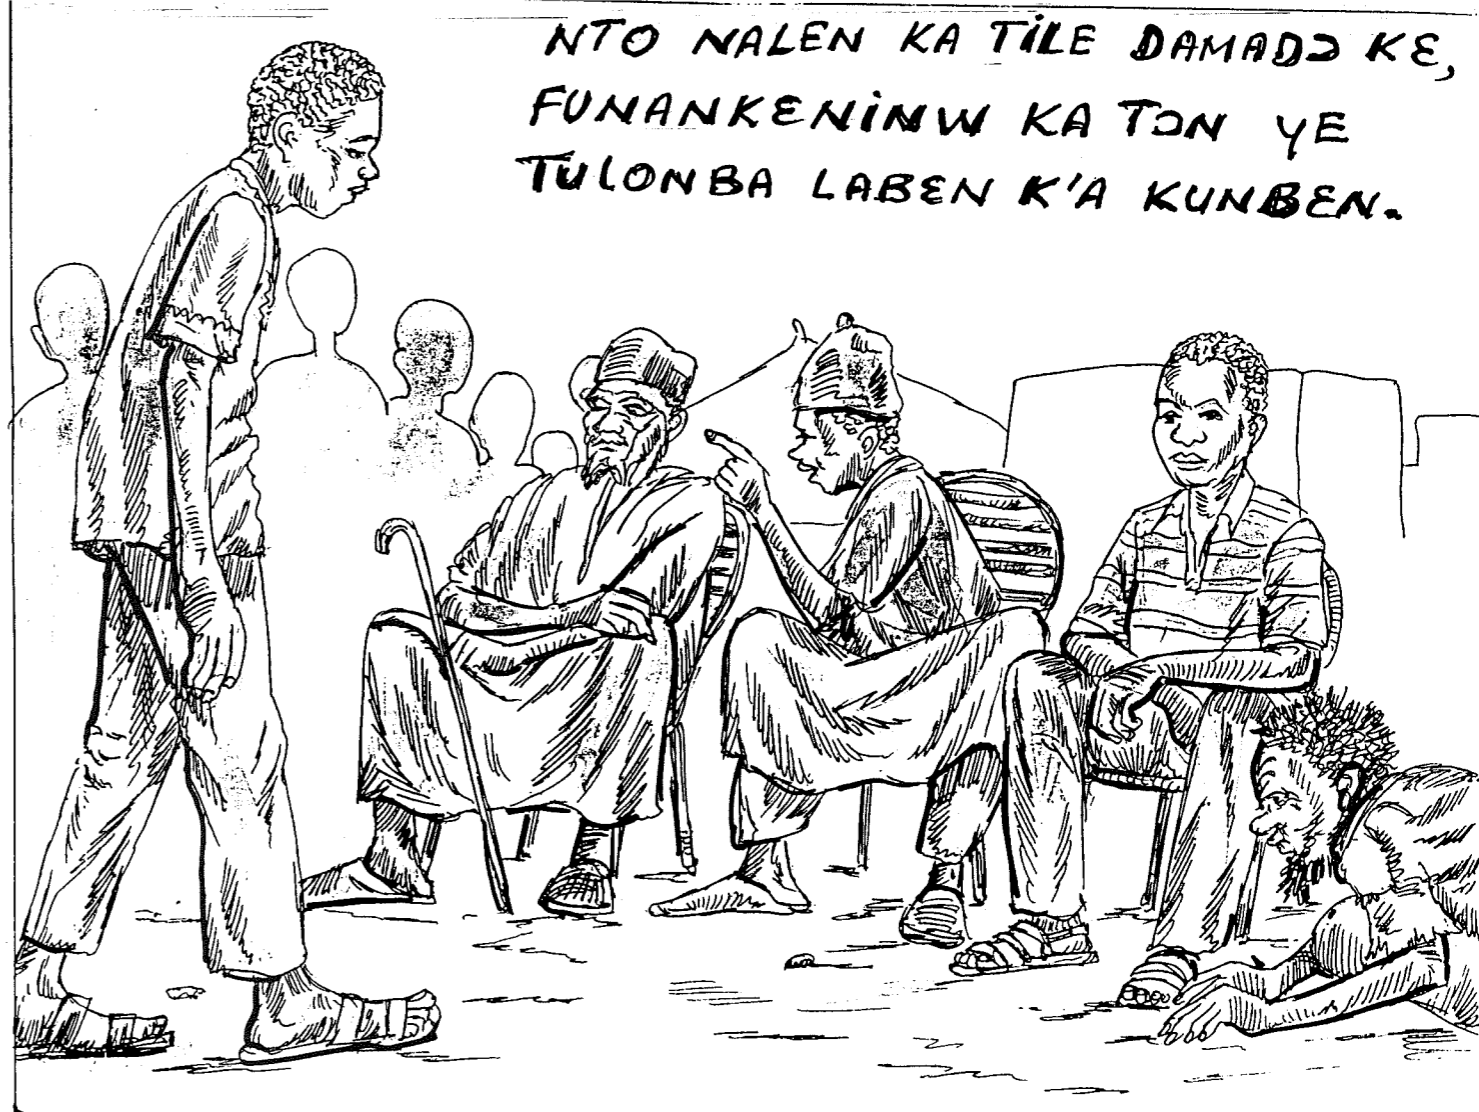 NTO NALEN KA TILE DAMADƆ KƐ,
FUNANKENINW KA TƆN YE
TULONBA LABƐN K'A KUNBƐN.